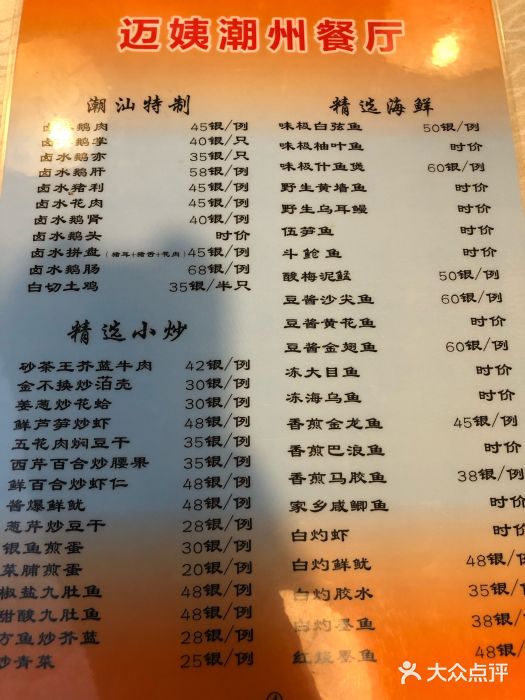 迈姨潮州餐厅
潮汕特制
卤水鹅肉 45银/例
卤水鹅掌 40银/只
卤水鹅亦 35银/只
卤水鹅肝 58银/例
卤水猪利 45银/例
卤水花肉 45银/例
卤水鹅肾 40银/例
卤水鹅头 时价
卤水拼盘(猪耳+猪舌+花肉) 45银/例
卤水鹅肠 68银/例
白切土鸡 35银/半只
精选小炒
砂茶王芥蓝牛肉 42银/例
金不换炒萡壳 30银/例
姜葱炒花蛤 30银/例
鲜芦笋炒虾 48银/例
五花肉焖豆干 35银/例
西芹百合炒腰果 35银/例
鲜百合炒虾仁 48银/例
酱爆鲜鱿 48银/例
葱芹炒豆干 28银/例
银鱼煎蛋 30银/例
菜脯煎蛋 20银/例
椒盐九肚鱼 48银/例
甜酸九肚鱼 48银/例
方鱼炒芥蓝 28银/例
炒青菜 25银/例
精选海鲜
味极白弦鱼 50银/例
味极柚叶鱼 时价
味极什鱼煲 60银/例
野生黄墙鱼 时价
野生乌耳鳗 时价
伍笋鱼 时价
斗鲳鱼 时价
酸梅泥鯭 50银/例
豆酱沙尖鱼 60银/例
豆酱黄花鱼 时价
豆酱金翅鱼 60银/例
冻大目鱼 时价
冻海乌鱼 时价
香煎金龙鱼 45银/例
香煎巴浪鱼 时价
香煎马胶鱼 38银/例
家乡咸鲫鱼 时价
白灼虾 时价
白灼鲜鱿 48银/例
白灼胶水 35银/例
白灼墨鱼 38银/
红烧墨鱼 48银/
大众点评